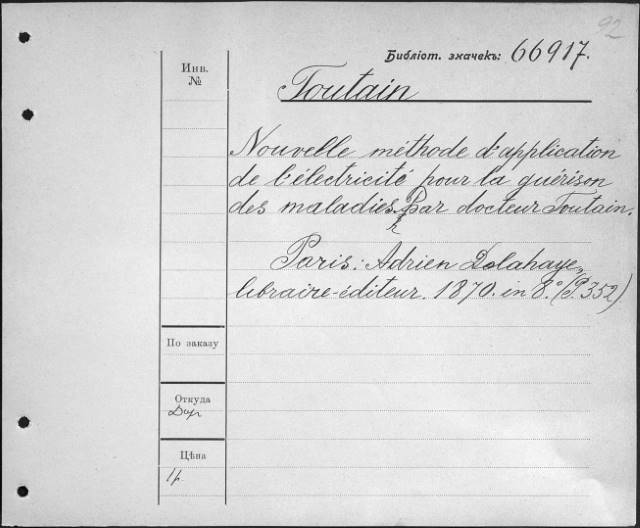 92
Библіот. значекъ: 66917.
Инв.
№
Toutain
Nouvelle méthode d'application
de l'électricité pour la guérison
des maladies. Par docteur Toutain.
Paris: Adrien Delahaye,
libraire-éditeur. 1870. in 8.° (P. 352)
По заказу
Откуда
Дар
Цѣна
1р.